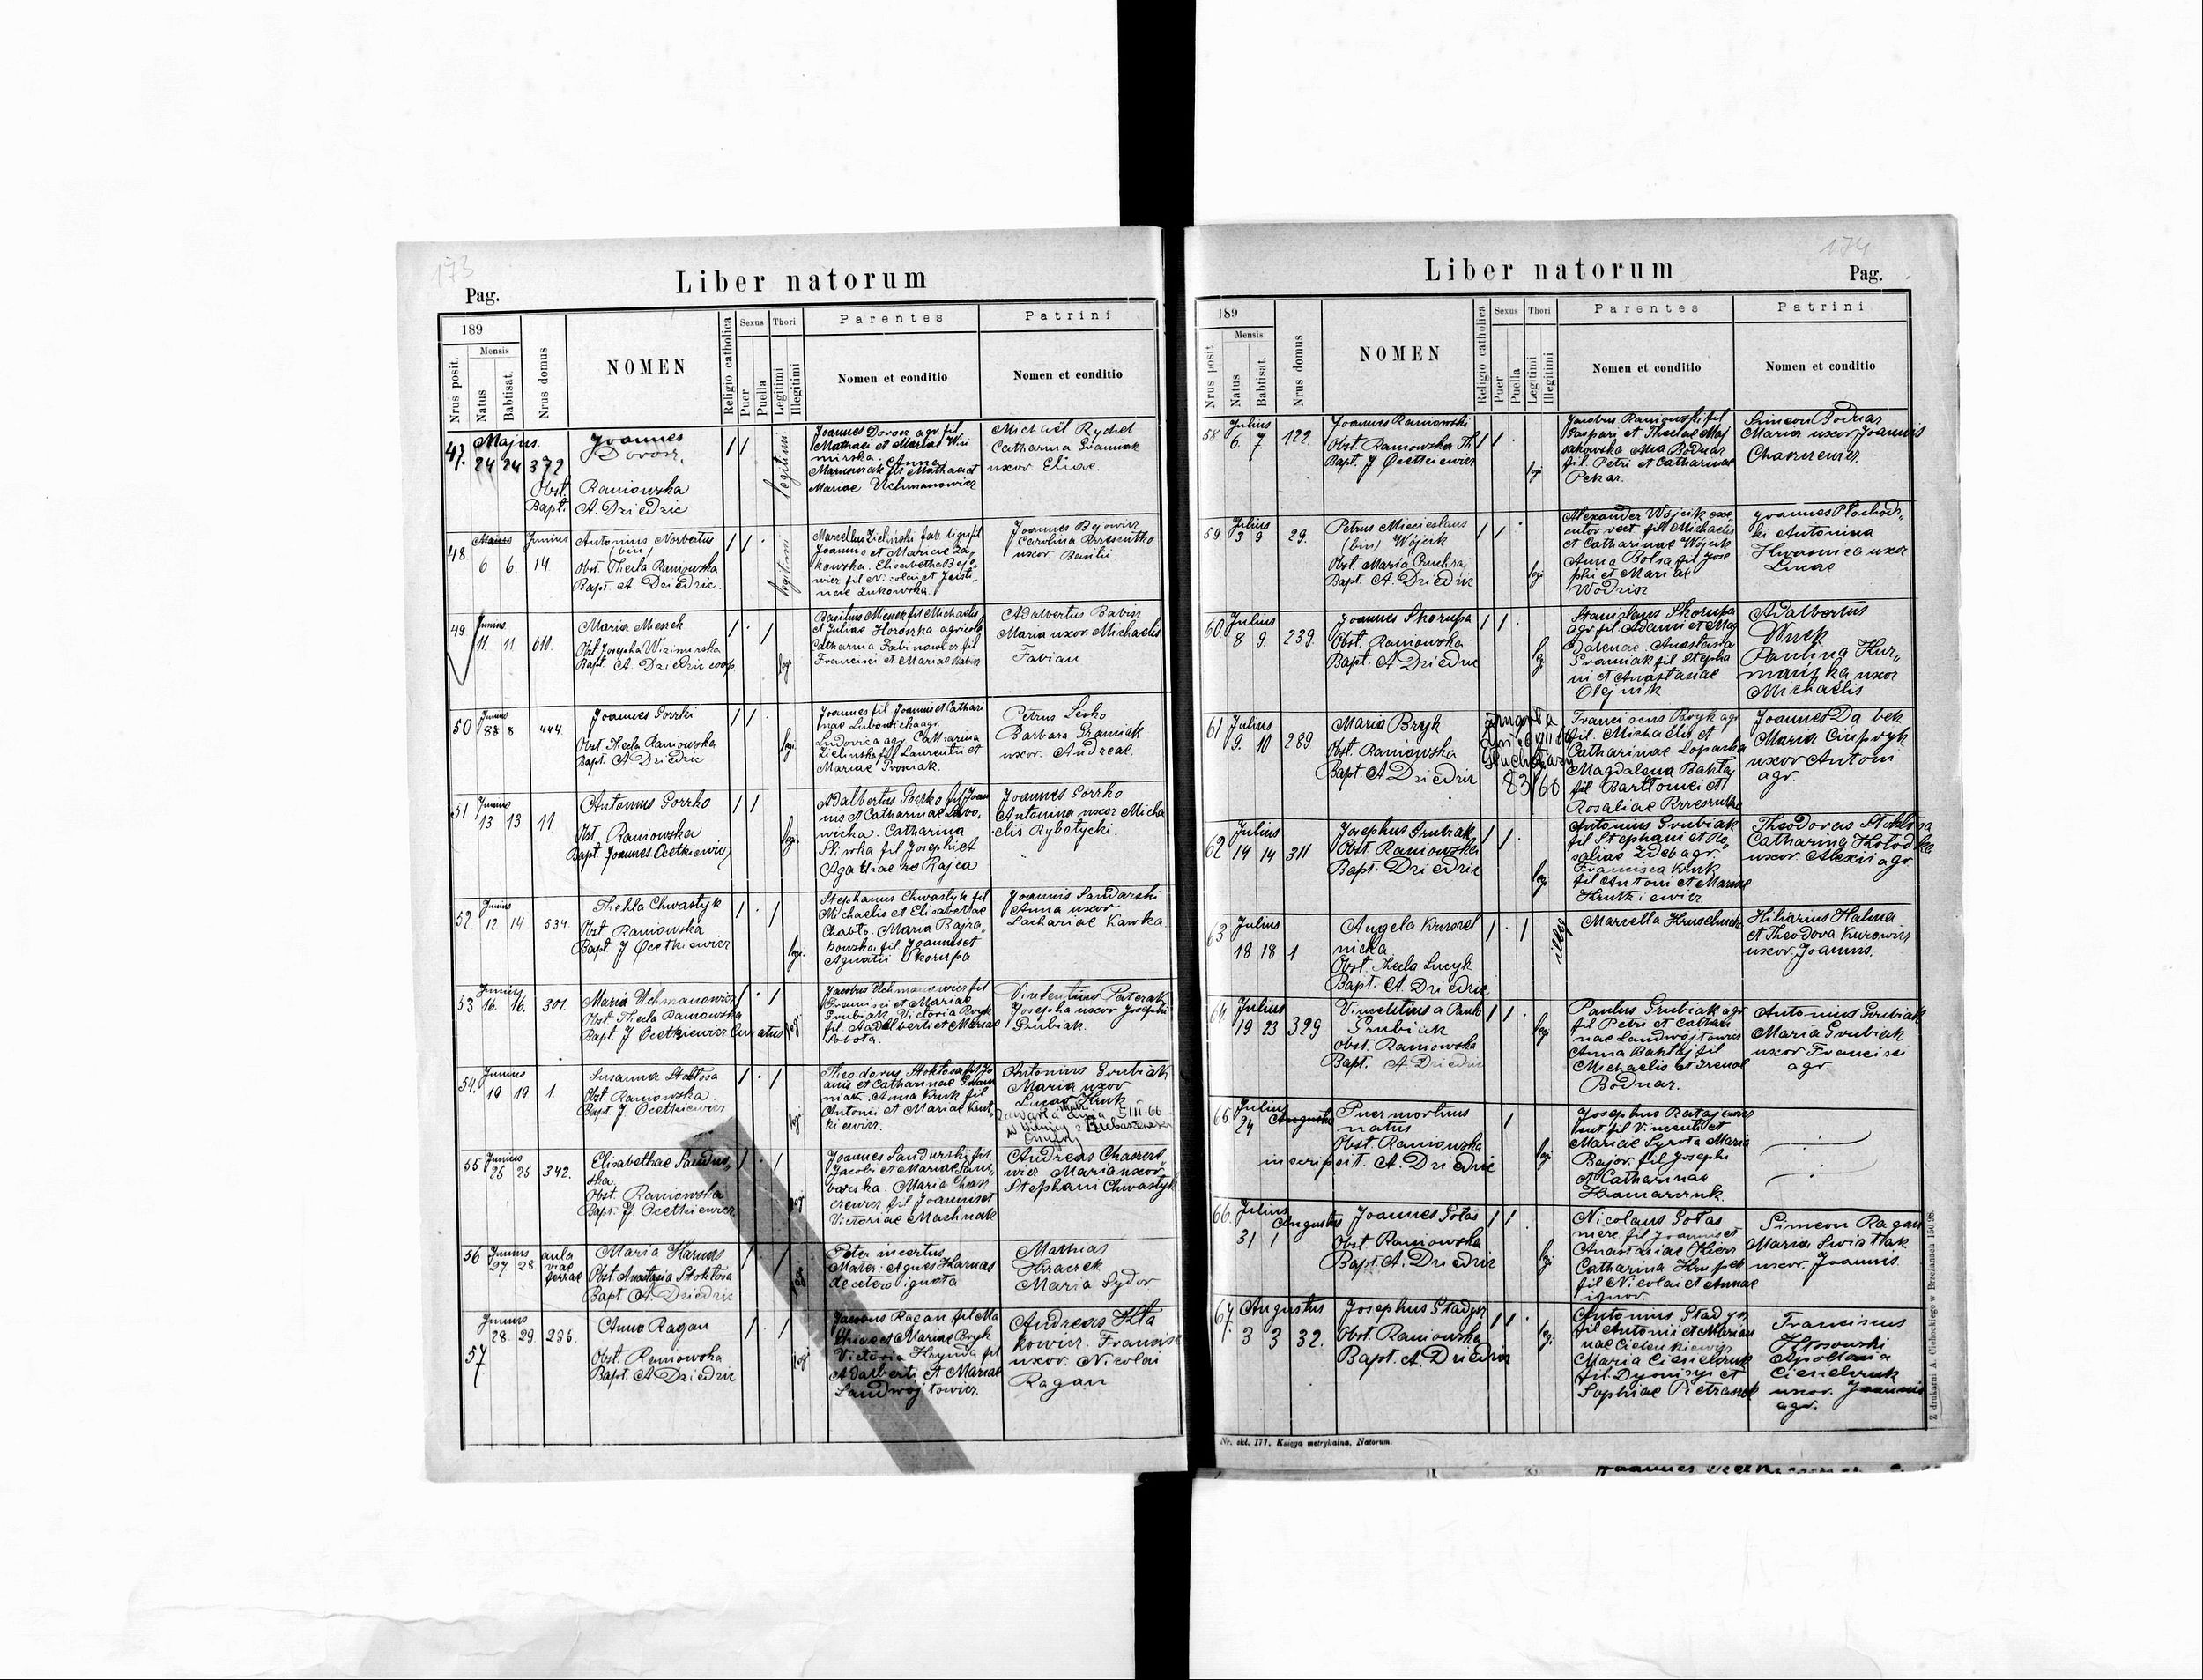 173
Pag.
Liber natorum
189
Mensis
Nrus posit.
Natus
Babtisat.
Nrus domus
NOMEN
Religio catholica
Sexus
Puer
Puella
Thori
Legitimi
Illegitimi
Parentes
Nomen et conditio
Patrini
Nomen et conditio
47. Majus
24 24 372
Joannes
Dorosz
Obst. Raniowska
Bapt. A. Dziedzic
legitimi
Joannes Dorosz agr. fil.
Mathaei et Mariae Wini
mirska. Anna
Marmoriak fil Mathaei et
Mariae Uchmanowicz
Michael Rychel
Catharina Graniak
uxor Eliae.
48 Junius
6 6. 14
Antonius Norbertus
(bin)
Obst. Thecla Raniowska
Bapt. A Dziedzic.
legitimi
Marcellus Zielinski fab lign fil
Joannis et Mariae Za
kowska. Elisabetha Bejo
wicz fil Nicolai et Justi
nae Lukowska.
Joannes Bejowicz
Carolina Krzesiutko
uxor Basilii
49 Junius
11 11 611.
Maria Mesech
Obst Josepha Wizimirska
Bapt. A. Dziedzic coop.
legi
Basilius Mesek fil Michaelis
et Juliae Horoszka agricola
Catharina Fabianowicz fil
Francisci et Mariae Babisz
Adalbertus Babisz
Maria uxor Michaelis
Fabian
50 Junius
8 8 444.
Joannes Gorzki
Obst Thecla Raniowska
Bapt. A Dziedzic
legi.
Joannes fil Joannis et Cathari
nae Lubowicka agr.
Ludovica agr. Catharina
Zielinska fil Laurentii et
Mariae Prosiak.
Petrus Lesko
Barbara Graniak
uxor. Andreae.
51 Junius
13 13 11
Antonius Gorzko
Obst Raniowska
Bapt. Joannes Ocetkiewicz
legi.
Adalbertus Gorzko fil Joan
nis et Catharinae Lubo,
wicka. Catharina
Sliwka fil Josephi et
Agathae no Rajca
Joannes Gorzko
Antonina uxor Micha
elis Rybotycki.
52. Junius
12 14 534.
Thekla Chwastyk
Obst Raniowska
Bapt J Ocetkiewicz
legi.
Stephanus Chwastyk fil
Michaelis et Elisabethae
Chabto. Maria Bajra
kowska fil Joannis et
Agnatii Skorupa
Joannis Sandarski
Anna uxor
Zachariae Kawka
53 Junius
16. 16. 301.
Maria Uchmanowicz
Obst Thecla Raniowska
Bapt. J Ocetkiewicz Curatus
legi.
Jacobus Uchmanowicz fil
Francisci et Mariae
Grubiak. Victoria Bryk
fil. Adalberti et Mariae
Sobota.
Vincentius Paterak
Josepha uxor Josephi
Grubiak.
54. Junius
19 19 1.
Susanna Stoktosa
Obst Raniowska
Bapt. J Ocetkiewicz
legi
Theodorus Stoktosa fil Jo
annis et Catharinae Grani
niak. Anna Kruk fil
Antonii et Mariae Krut,
kiewicz.
Antonius Grubiak
Maria uxor
Lucae Kruk
55 Junius
25 25 342.
Elisabethae Sandur,
ska,
Obst. Raniowska
Bapt. J. Ocetkiewicz
legi
Joannes Sandurski fil.
Jacobi et Mariae Sam,
borska. Maria Chasz
czewicz fil Joannis et
Victoriae Machnak
Andreas Chaszcze
wicz Maria uxor
Stephani Chwastyk
56 Junius
27 28.
aula
viae
ferrae
Maria Harnas
Obst Anastasia Stoktosa
Bapt. A. Dziedzic
Pater incertus
Mater: Agnes Harnas
de cetero ignota
Mathias
Kraczek
Maria Sydor
57 Junius
28. 29. 296.
Anna Ragan
Obst. Raniowska
Bapt. A Dziedzic
legi
Jacobus Ragan fil Ma
thiae et Mariae Bryk
Victoria Hrynda fil
Adalberti et Mariae
Landwojtowicz.
Andreas Kta
kowicz. Francisc
uxor. Nicolai
Ragan
174
Liber natorum
Pag.
189
Mensis
Nrus posit.
Natus
Babtisat.
Nrus domus
NOMEN
Religio catholica
Sexus
Puer
Puella
Thori
Legitimi
Illegitimi
Parentes
Nomen et conditio
Patrini
Nomen et conditio
58. Julius
6. 7. 122.
Joannes Raniowski
Obst. Raniowska Th
Bapt. J Ocetkiewicz
legi
Jacobus Raniowski fil
Gaspari et Theclae Maj
sakowska Ana Bodnar
fil. Petri et Catharinae
Pekar.
Simeon Bodnar
Maria uxor Joannis
Chaszczewicz.
59 Julius
3 9 29.
Petrus Miecislaus
(bin) Wójcik
Obst. Maria Puchra
Bapt. A. Dziedzic
legi
Alexander Wójcik exe
cutor vect fil Michaelis
et Catharinae Wójcik
Anna Bolsa fil Jose
phi et Mariae
Wodzisz
Joannes Ptochoc,
ki Antonina
Kwasnica uxor
Lucae
60 Julius
8 9. 239.
Joannes Skorupa
Obst. Raniowska
Bapt. A Dziedzic
legi
Stanislaus Skorupa
agr fil Adami et Mag
dalenae. Anastasia
Graniak fil Stepha
ni et Anastasiae
Olejnik
Adalbertus
Wnuk
Paulina Kur,,
manska uxor
Michaelis
61. Julius
9. 10 289
Maria Bryk
Obst. Raniowska
Bapt. A Dziedzic
83/66
Franciscus Bryk agr
fil. Michaelis et
Catharinae Loparska
Magdalena Baktaj
fil Bartlomei et
Rosaliae Krzesiutko
Joannes Da bek
Maria Ciupryk
uxor Antoni
agr.
62 Julius
14 14 311
Josephus Grubiak
Obst Raniowska
Bapt. Dziedzic
legi
Antonius Grubiak
fil Stephani et Ro,
saliae Zdeb agr.
Francisca Kruk
fil Antoni et Mariae
Krutkiewicz.
Theodorus Stoktosa
Catharina Kotodka
uxor. Alexii agr
63 Julius
18 18 1
Angela Krusel
nicka
Obst. Thecla Lucyk
Bapt. A. Dziedzic
illeg
Marcella Kruselnick
Hiliarius Halma
et Theodora Kurowicz
uxor. Joannis.
64 Julius
19 23 329
Vincentius a Paulo
Grubiak
Obst. Raniowska
Bapt. A Dziedzic
legi
Paulus Grubiak agr
fil Petri et Cathari
nae Landwojtowicz
Anna Baktaj fil
Michaelis et Irenae
Bodnar.
Antonius Grubiak
Maria Grubiak
uxor Francisci
agr
65 Julius
24 Augustus
Puer mortuus
natus
Obst. Raniowska
inscripsit. A. Dziedzic
legi
Josephus Ratajewicz
fil Vincentii et
Mariae Syrota Maria
Bajor. fil Josephi
et Catharinae
Kramarczuk.
66. Julius Augustus
31 1
Joannes Gotas
Obst. Raniowska
Bapt. A. Dziedzic
legi
Nicolaus Gotas
merc. fil Joannis et
Anastasiae Kiers
Catharina Krupek
fil Nicolai et Annae
ignor.
Simeon Ragan
Maria Swistak
uxor. Joannis.
67. Augustus
3 3 32.
Josephus Gtadysz
Obst. Raniowska
Bapt. A. Dziedzic
legi.
Antonius Gtadysz
fil Antonii et Marian
nae Cielenkiewicz
Maria Ciesielczuk
fil. Dyonisii et
Sophiae Pietraszek
Franciscus
Ktosowski
Apollonia
Ciesielczuk
uxor. Joannis
agr.
Nr. skl. 177. Księga metrykalna. Natorum.
Z drukarni A. Cichockiego w Brzeżanach 150/98.